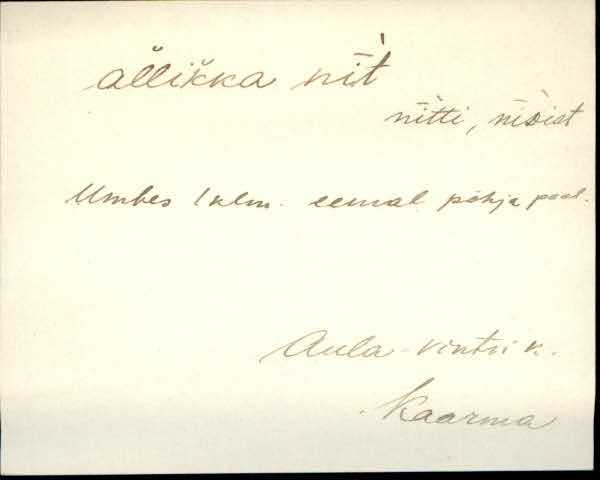 ällikka nìt
nìtti, nìs̀ist
Umbes 1 klm. eemal põhja pool.
Aula-Vintri k.
Kaarma